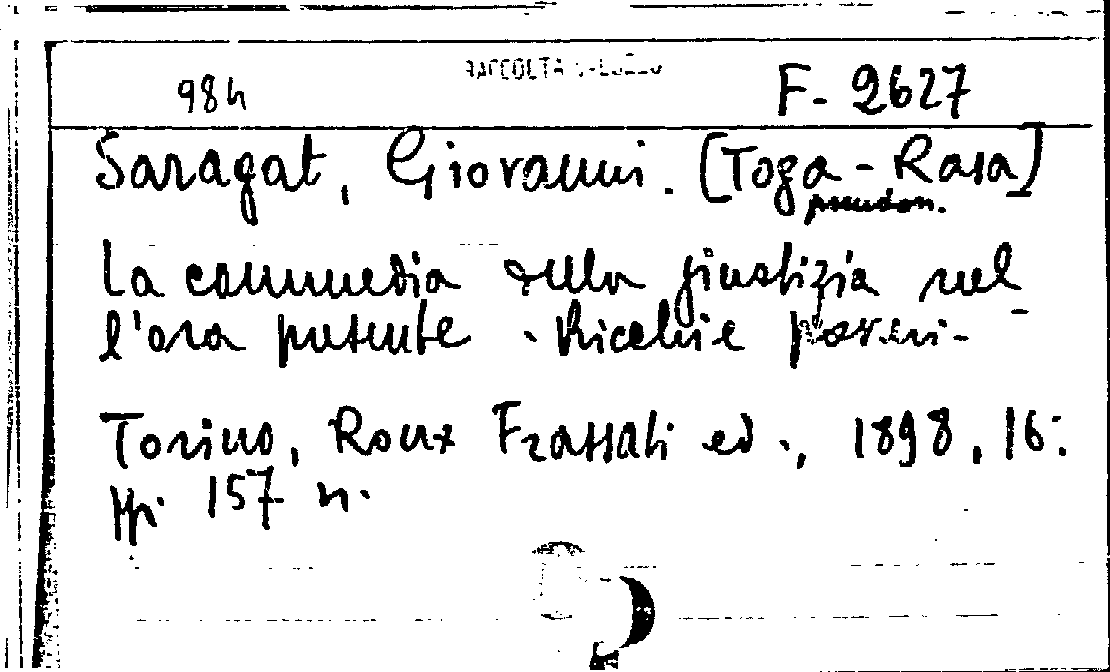 984 RACCOLTA F. 2627
Saragat, Giovanni. [Toga-Rasa]
pseudon.
La commedia della giustizia nel
l'ora presente. Ricchi e poveri-
Torino, Roux Frassati ed., 1898, 16:
pp. 157 n.